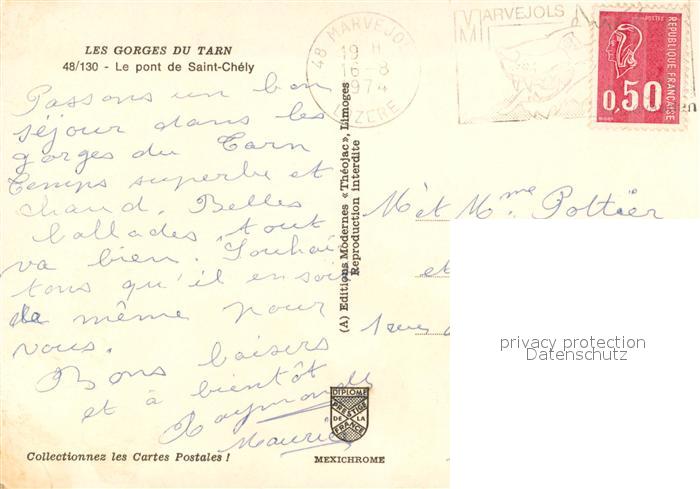 LES GORGES DU TARN
48/130 - Le pont de Saint-Chély
Passons un bon
séjour dans les
gorges du Tarn
temps superbe et
chaud. Belles
ballades, tout
va bien. Souhai
tons qu'il en soit
de même pour
vous.
Bons baisers
et à bientôt
Raymonde
Maurice
Collectionnez les Cartes Postales !
(A) Editions Modernes « Théojac », Limoges
Reproduction interdite
DIPLOME
PRESTIGE
DE LA
FRANCE
MEXICHROME
48 MARVEJOLS
19 H
16 - 8
1974
LOZERE
MARVEJOLS
POSTES
REPUBLIQUE FRANÇAISE
0,50
en
M et Mme Pottier
et
1 rue
privacy protection
Datenschutz